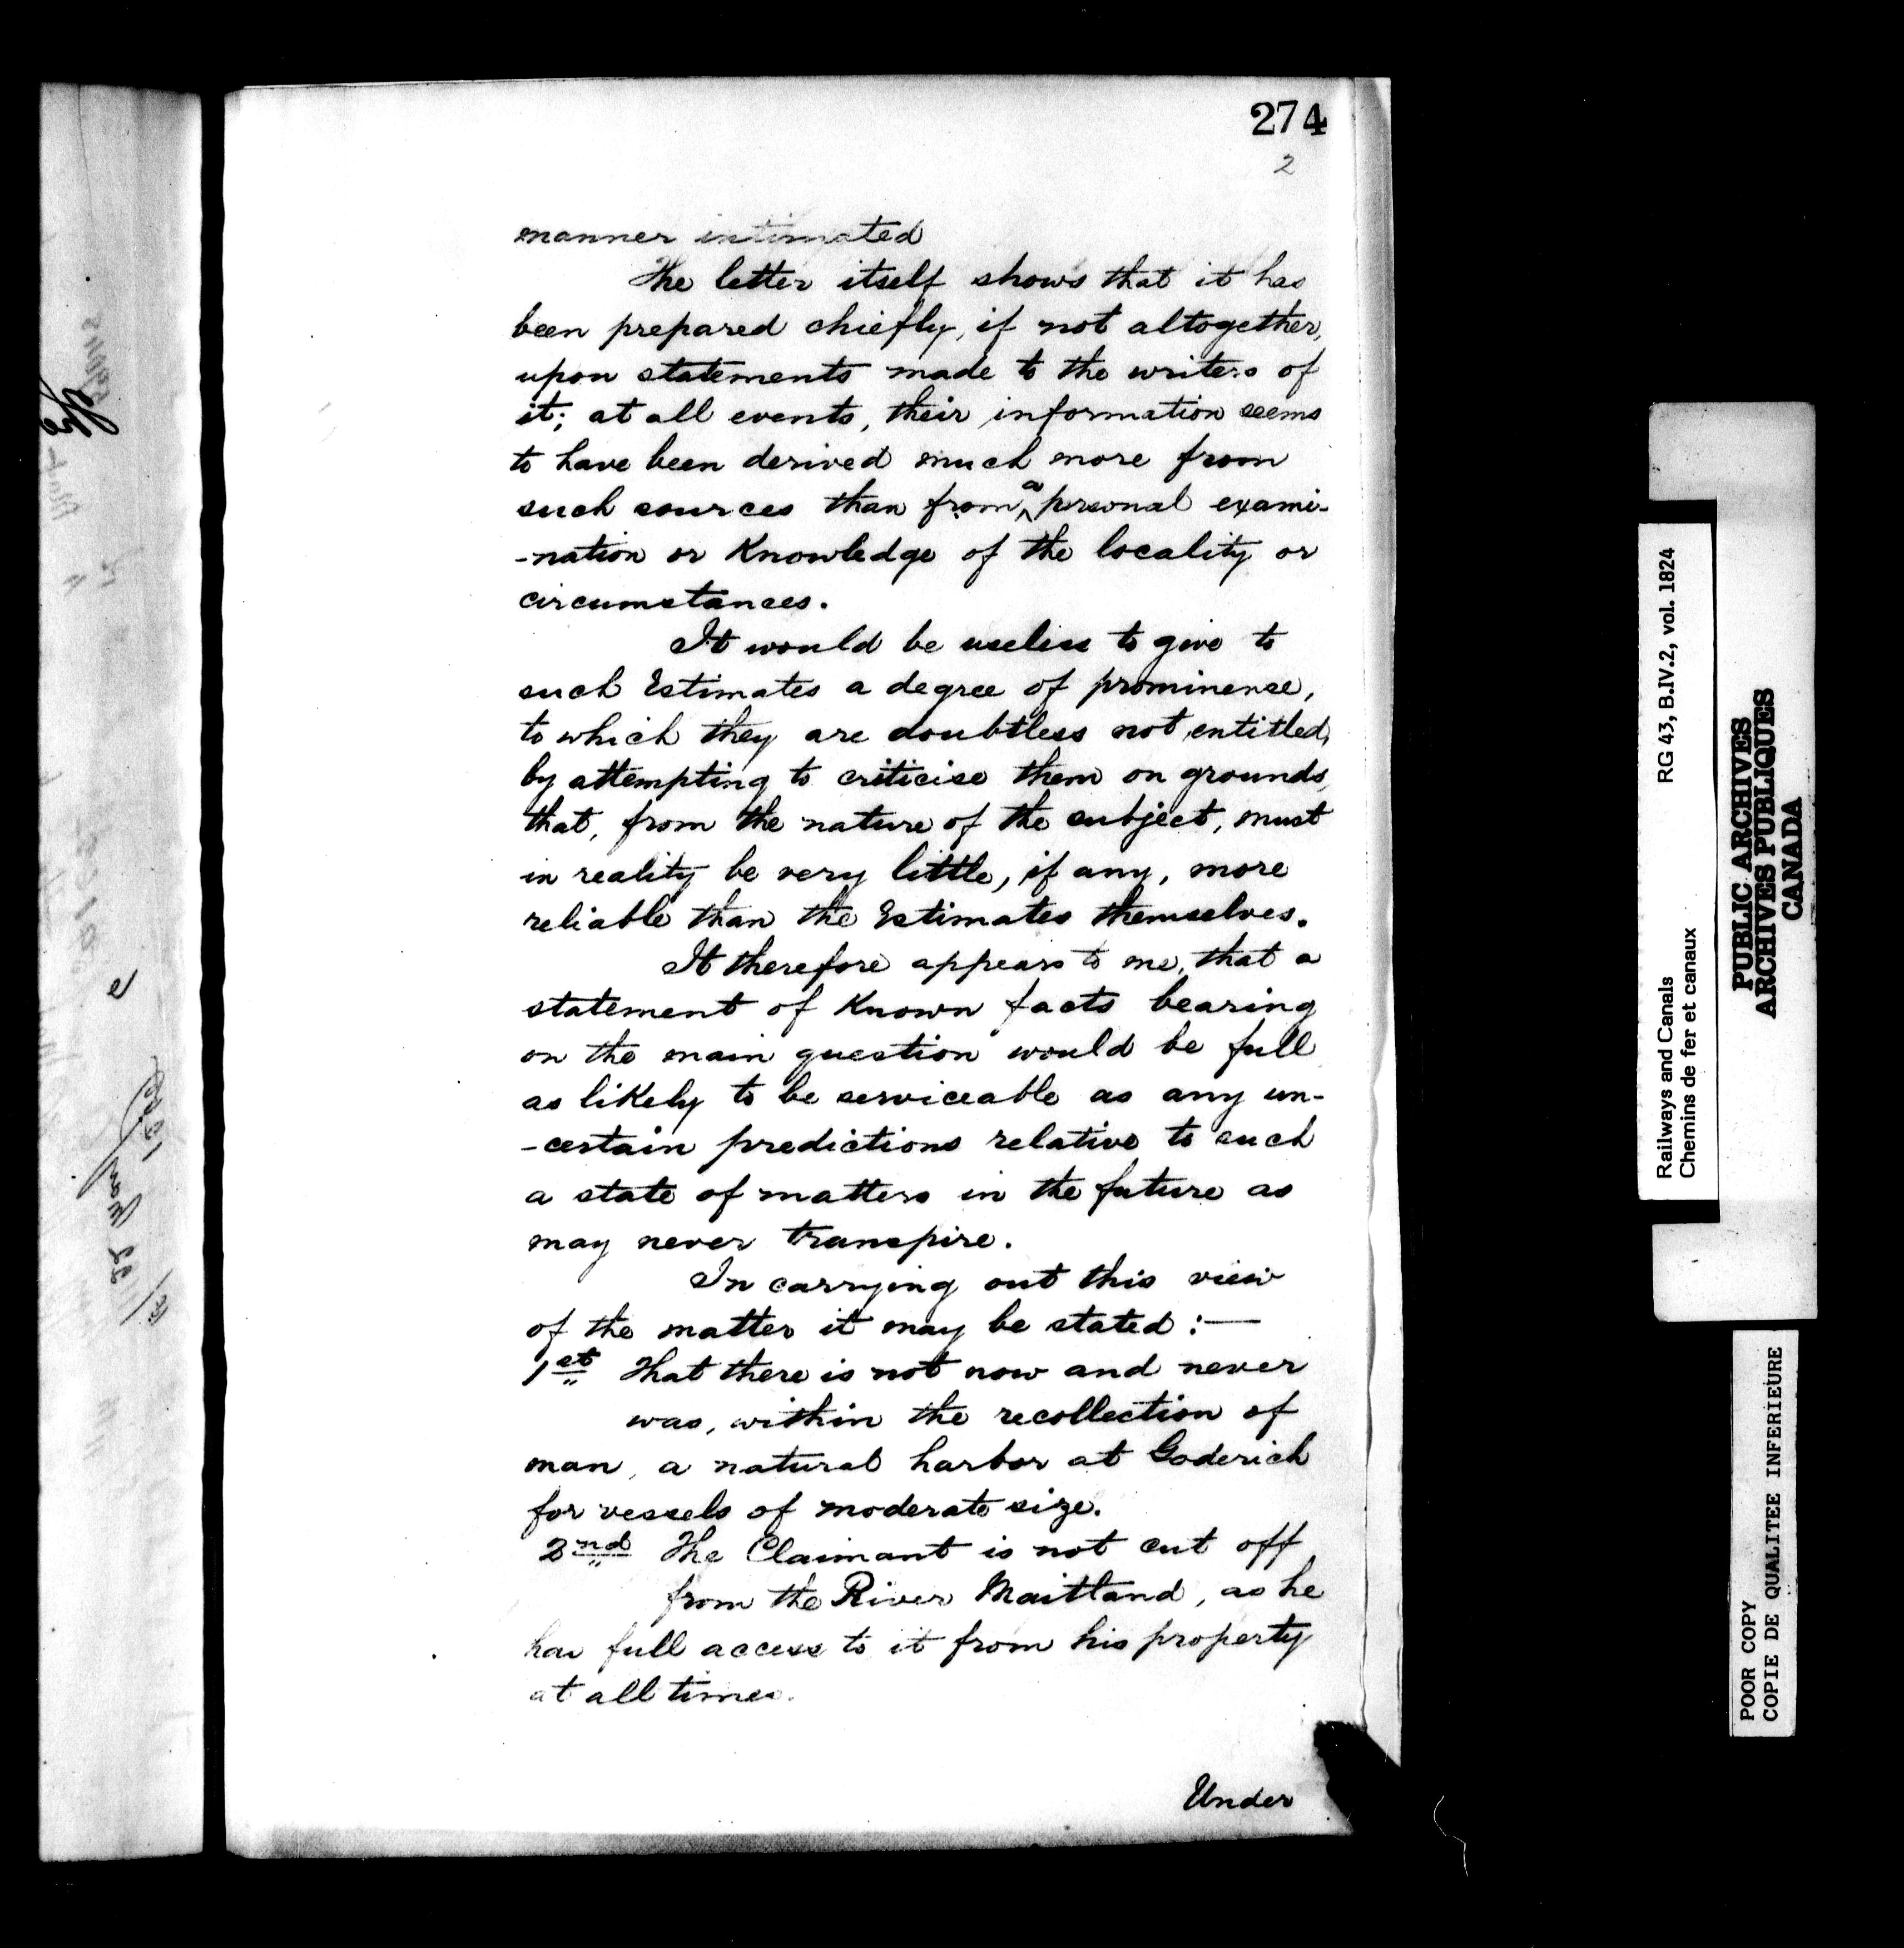 274
2
manner intimated
The letter itself shows that it has
been prepared chiefly, if not altogether,
upon statements made to the writers of
it; at all events, their information seems
to have been derived much more from
such sources than from a prsonal exami-
-nation or Knowledge of the locality or
circumstances.
It would be useless to give to
such Estimates a degree of prominence,
to which they are doubtless not entitled,
by attempting to criticise them on grounds,
that, from the nature of the subject, must
in reality be very little, if any, more
reliable than the Estimates themselves.
It therefore appears to me, that a
statement of Known facts bearing
on the main question would be full
as likely to be serviceable as any un-
-certain predictions relative to such
a state of matters in the future as
may never transpire.
In carrying out this view
of the matter it may be stated :—
1st That there is not now and never
was, within the recollection of
man, a natural harbor at Goderich
for vessels of moderate size.
2nd The Claimant is not cut off
from the River Maitland, as he
has full access to it from his property
at all times.
Under
Railways and Canals RG 43, B.IV.2, vol. 1824
Chemins de fer et canaux
PUBLIC ARCHIVES
ARCHIVES PUBLIQUES
CANADA
POOR COPY
COPIE DE QUALITEE INFERIEURE